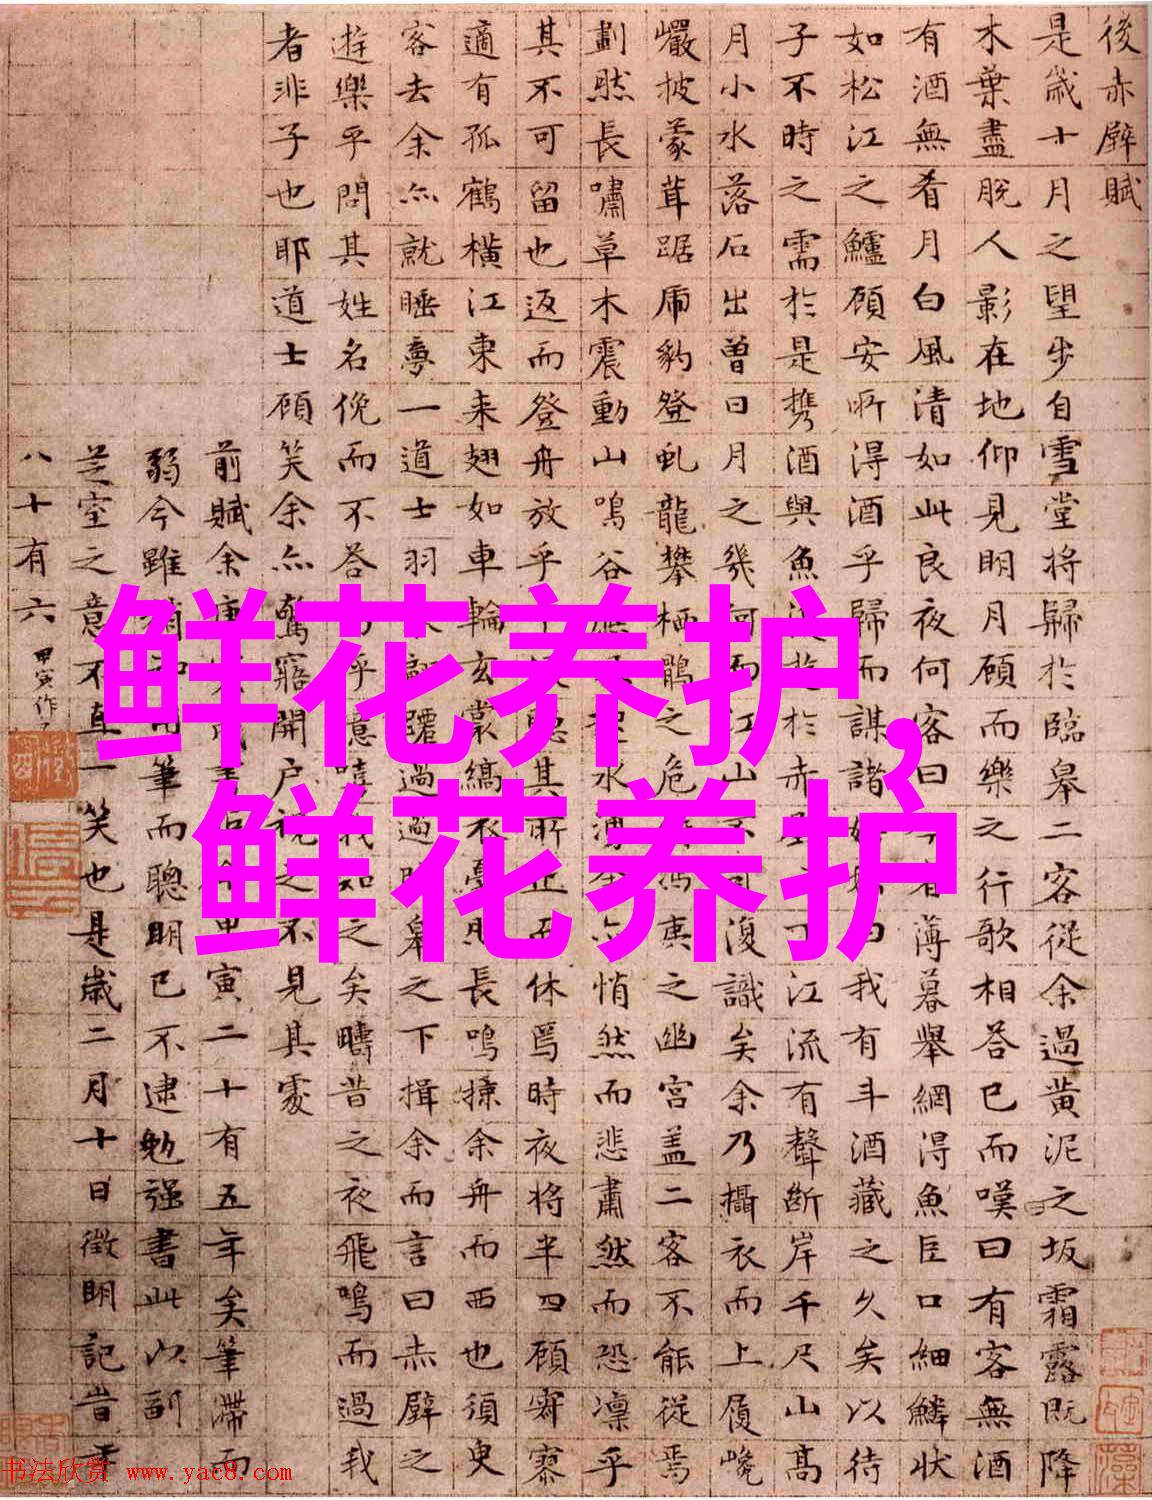 後赤壁賦
是歲十月之望步自雪堂將歸於臨皋二客從余過黃泥之坂霜露既降
木葉盡脫人影在地仰見明月顧而樂之行歌相荅已而嘆曰有客無酒
有酒無肴月白風清如此良夜何客曰今者薄暮舉網得魚巨口細鱗狀
如松江之鱸顧安所得酒乎歸而謀諸婦曰我有斗酒藏之久矣以待
子不時之需於是携酒與魚於赤江流有聲斷岸千尺山高
月小水落石出曾日月之幾何而江山不復識矣余乃攝衣而上履巉
巖披蒙茸踞虎豹登虬龍攀栖鶻之危夷之幽宮盖二客不能從焉
劃然長嘯草木震動山鳴谷應起水湧悄然而悲肅然而恐凜乎
其不可留也返而登舟放乎聽其所止而休焉時夜將半四顧寂寥
適有孤鶴橫江東来翅如車輪玄裳縞衣長鳴掠余舟而西也須臾
客去余亦就睡夢一道士羽衣翩躚過皋之下揖余而言曰赤壁之
遊樂乎問其姓名俛而不荅乎噫嘻我知之矣疇昔之夜飛鳴而過我
者非子也耶道士顧笑余亦驚寤開户視之不見其處
前賦余庚寅二十有五年矣筆滯而
弱今雖筆而聰明已不逮勉强書此以副
芝室之意不直一笑也是歲二月十日徵明記
八十有六
甲寅作
鲜花养护,
鲜花养护
书法欣赏 www.yac8.com